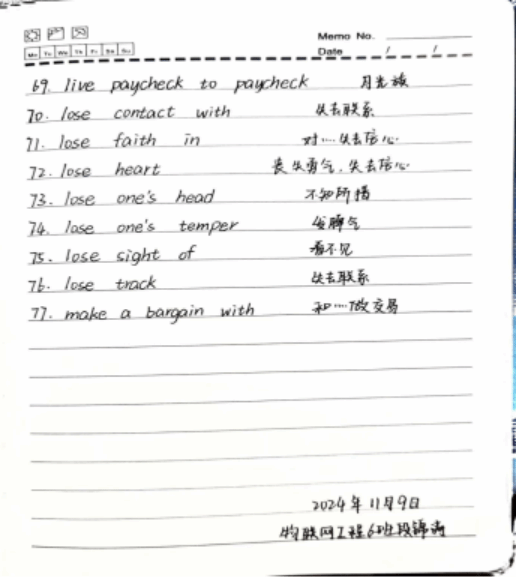 Memo No.
Mo Tu We Th Fr Sa Su
Date / /
69. live paycheck to paycheck 月光族
70. lose contact with 失去联系
71. lose faith in 对...失去信心
72. lose heart 丧失勇气，失去信心
73. lose one's head 不知所措
74. lose one's temper 发脾气
75. lose sight of 看不见
76. lose track 失去联系
77. make a bargain with 和...做交易
2024年11月9日
物联网工程6班段锦涛